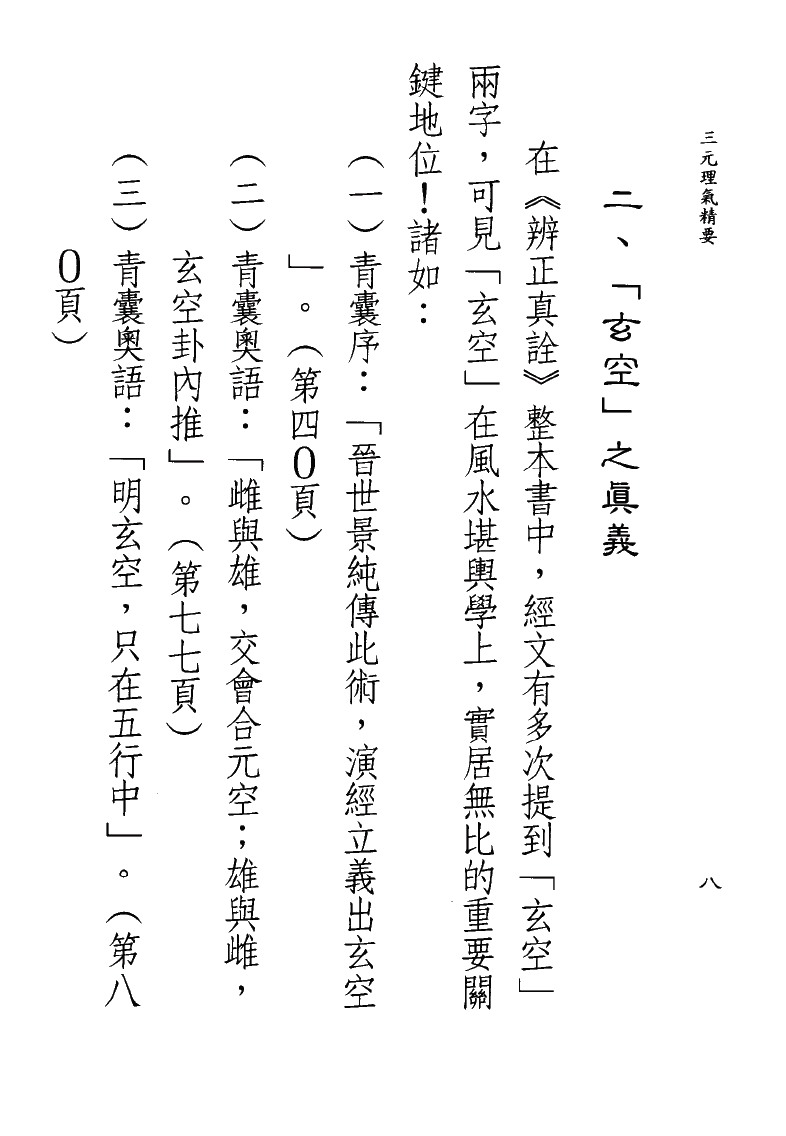 三元理氣精要
八
二、「玄空」之眞義
在《辨正真詮》整本書中，經文有多次提到「玄空」
兩字，可見「玄空」在風水堪輿學上，實居無比的重要關
鍵地位！諸如：
（一）青囊序：「晉世景純傳此術，演經立義出玄空
」。（第四0頁）
（二）青囊奧語：「雌與雄，交會合元空；雄與雌，
玄空卦內推」。（第七七頁）
（三）青囊奧語：「明玄空，只在五行中」。（第八
0頁）